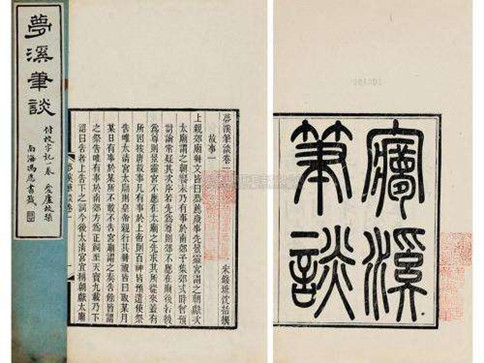 夢溪筆談
附校字記一卷 愛廬校栞
南海馮愿書籤
夢溪筆談卷一
宋錢塘沈括撰
故事一
上親郊廟冊文皆曰恭薦歲事先景靈宮謂之朝獻次
太廟謂之朝饗末乃有事於南郊予集郊式時曾預
討論常疑其次序若先為尊則郊不應在廟後若後
為尊則景靈宮不應在太廟之先求其所從來蓋有
所因按唐故事凡有事於上帝則百神皆預遣使祭
告唯太清宮太廟則皇帝親行其冊祝皆曰取某月
某日有事於某所不敢不告宮廟謂之奏告餘皆謂
之祭告唯有事於南郊方為正祠至天寶九載乃下
詔曰告者上告下之詞今後太清宮宜稱朝獻太廟
夢溪
筆談